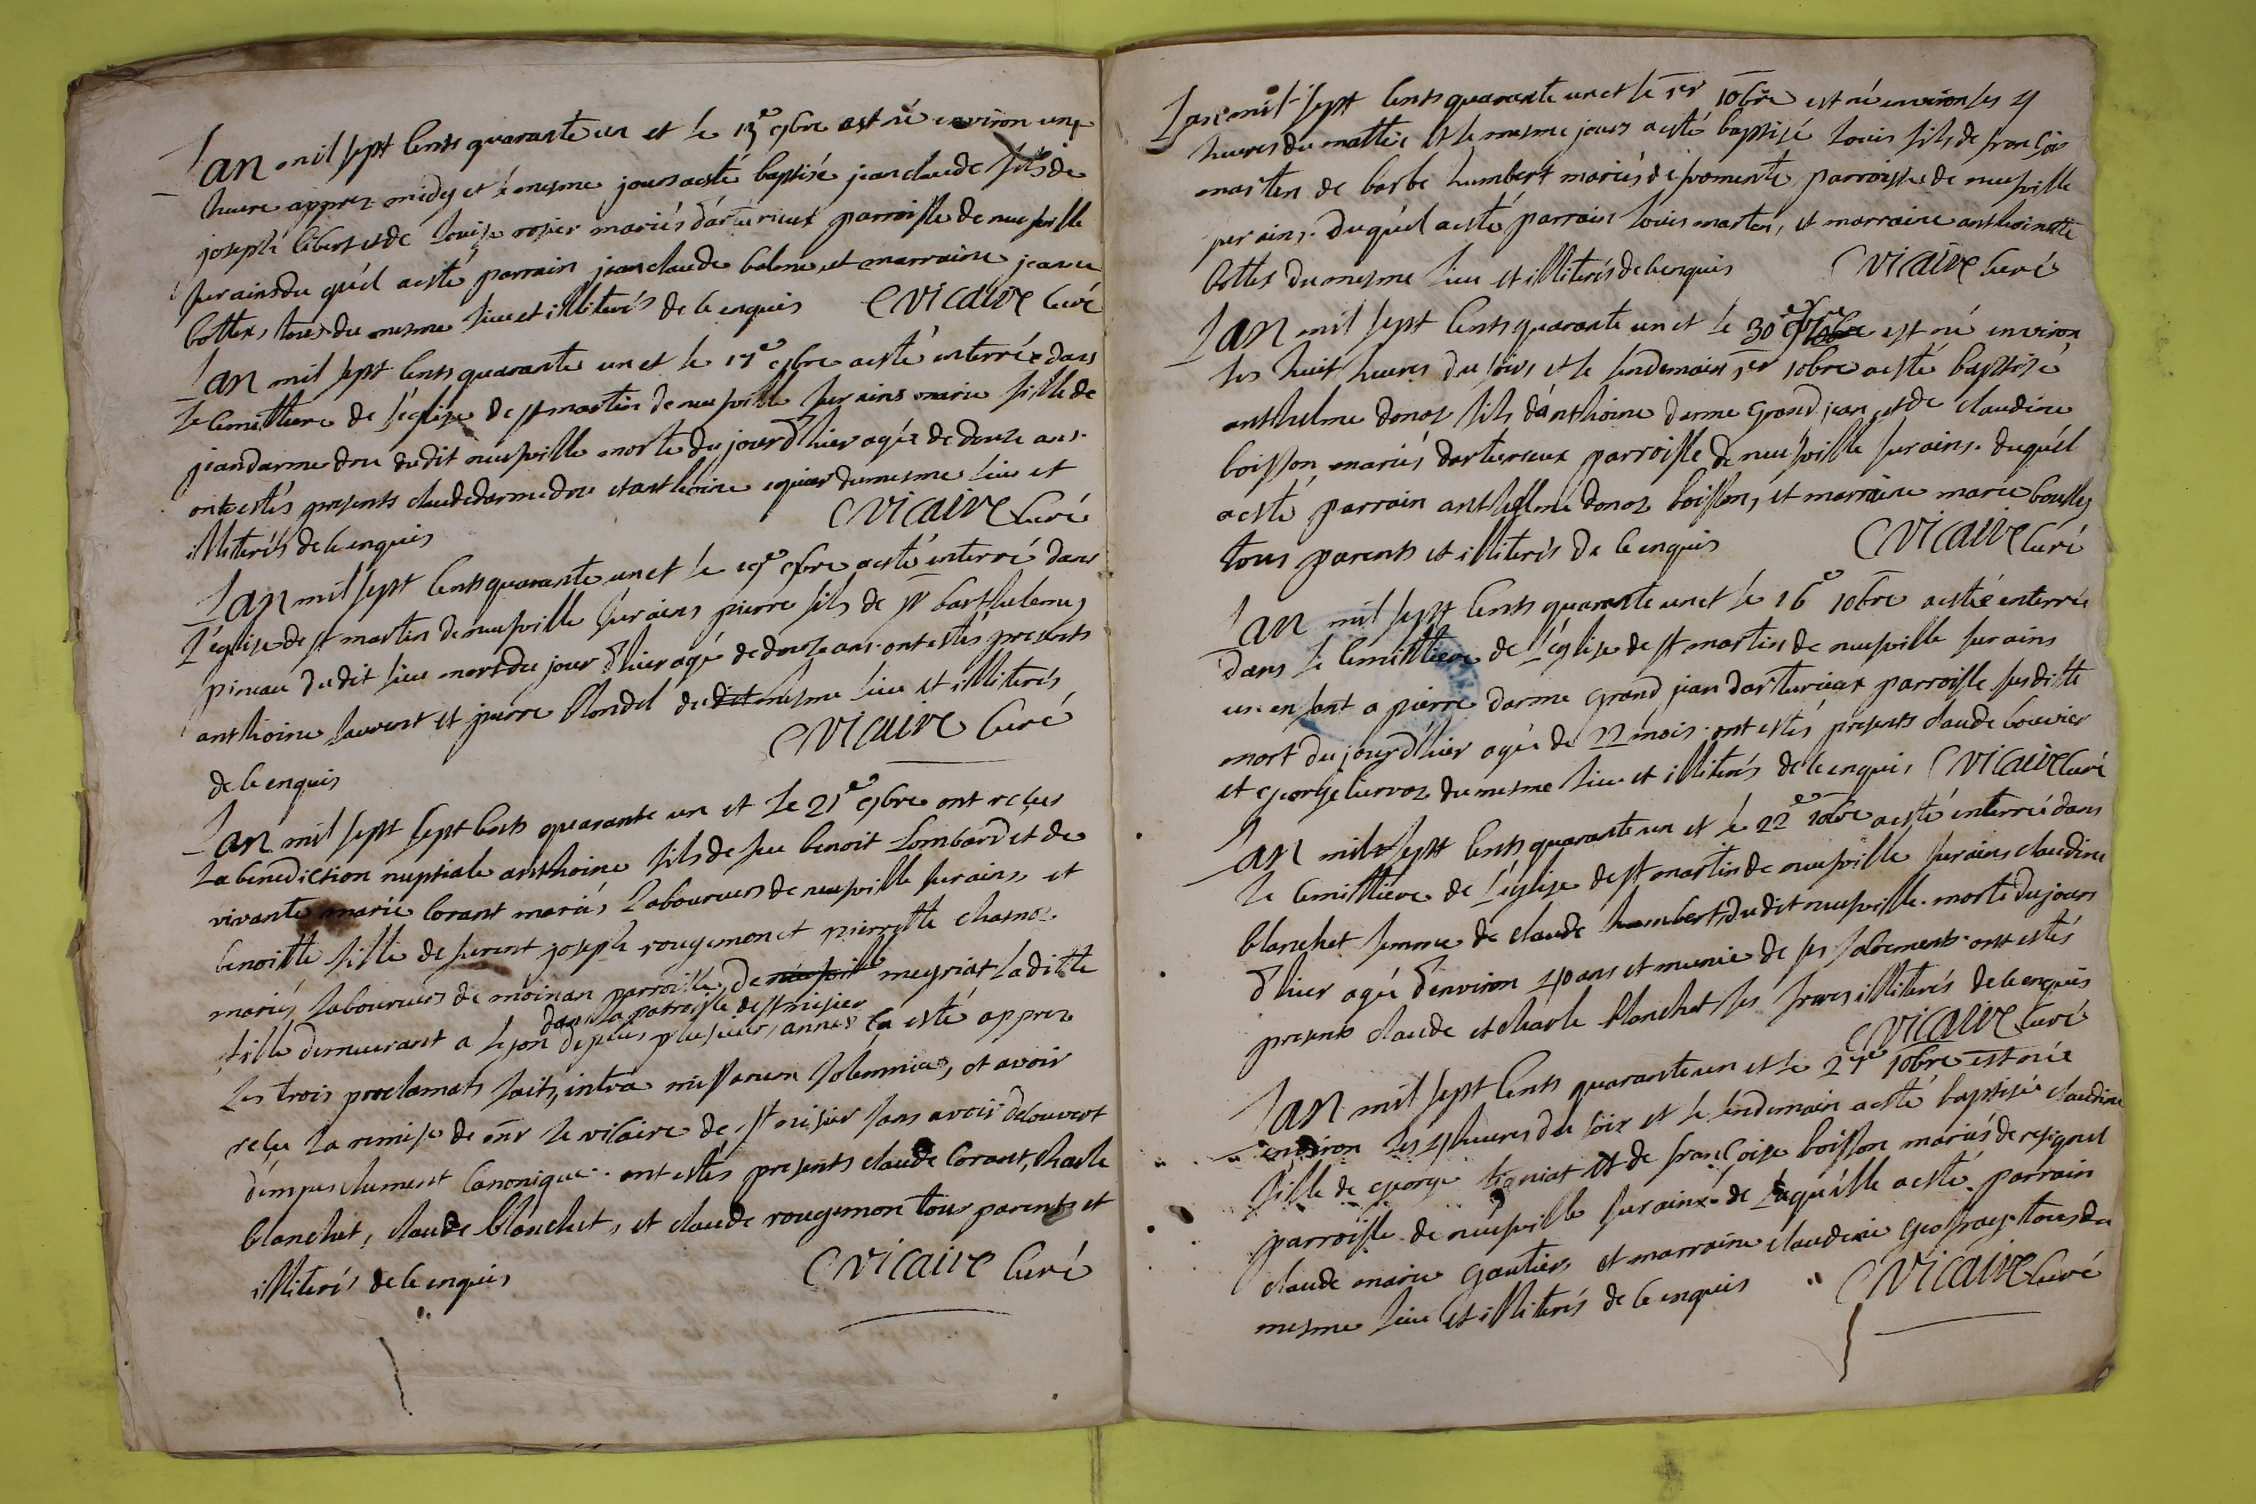 Lan mil sept cents quarante un et le 13e 9bre est né environ une
heure apprez midy et le mesme jour a esté baptisé jean claude fils de
joseph libert et de louise rosier mariés d'arturieux parroisse de neufville
sur ains du quél a esté parrain jean claude balme et marraine jeanne
bottex tous du mesme lieu et illiterés de ce enquis Vicaire curé
Lan mil sept cents quarante un et le 17e 9bre a esté enterrée dans
le cimettiere de l'église de st martin de neufville sur ains marie fille de
jean darmedru du dit neufville morte du jour d'hier agée de douze ans.
ont estés presents claude darmedru et anthoine du mesme lieu et
illiterés de ce enquis Vicaire curé
Lan mil sept cents quarante un et le 19e 9bre a esté enterré dans
l'église de st martin de neufville sur ains pierre fils de sr barthelemy
pireau du dit lieu mort du jour d'hier agé de douze ans. ont estés presents
anthoine laurent et pierre blondel du dit mesme lieu et illiterés
de ce enquis Vicaire curé
Lan mil sept sept cents quarante un et le 21e 9bre ont reçus
la benediction nuptiale anthoine fils de feu benoit Lombard et de
vivante marie corant mariés laboureurs de neufville sur ains et
benoitte fille de furent joseph rougemon et pierrette charnoz
mariés laboureurs de moinan parroisse de neufville meyriat la ditte
dans la parroisse de st nisier
fille demeurant a lyon depuis plusieurs années ça esté apprez
les trois proclamats faits, intra missarum solemnia, et avoir
reçu la remise de mr le vicaire de st nisier sans avoir decouvert
d'impeschement canonique. ont estés presents claude corant, charle
blanchet, claude blanchet, et claude rougemon tous parents et
illiterés de ce enquis Vicaire curé
Lan mil sept cents quarante un et le 1er 10bre est né environ les 4
heures du mattin et le mesme jour a esté baptisé louis fils de françois
marten de barbe humbert mariés de fromente parroisse de neufville
sur ains. du quél a esté parrain louis marten, et marraine anthoinette
bottex du mesme lieu et illiterés de ce enquis Vicaire curé
Lan mil sept cents quarante un et le 30e 9bre est né environ
les huit heures du soir et le lendemain 1er 10bre a esté baptisé
anthelme donoz fils d'anthoine darme grand jean et de claudine
boisson mariés d'arturieux parroisse de neufville sur ains. du quél
a esté parrain anthelme donoz boisson, et marraine marie
tous parents et illiterés de ce enquis Vicaire curé
Lan mil sept cents quarante un et le 16e 10bre a esté enterré
dans le cimettiere de l'église de st martin de neufville sur ains
un enfant a pierre darme grand jean d'arturieux parroisse susditte
mort du jour d'hier agée de 22 mois. ont estés presents claude bouvier
et george curvoz du mesme lieu et illiterés de ce enquis Vicaire curé
Lan mil sept cents quarante un et le 22e 10bre a esté enterré dans
le cimettiere de l'église de st martin de neufville sur ains claudine
blanchet femme de claude humbert du dit neufville. morte du jour
d'hier agé d'environ 40 ans et munie de ses sacrements. ont estés
presents claude et charle blanchet ses freres illiterés de ce enquis
Vicaire curé
Lan mil sept cents quarante un et le 27e 10bre est née
environ les 4 heures du soir et le lendemain a esté baptisée claudine
fille de george tigniat et de françoise boisson mariés de resignel
parroisse de neufville sur ains. de laquélle a esté parrain
claude marie gautier et marraine claudine geofray tous du
mesme lieu et illiterés de ce enquis Vicaire curé